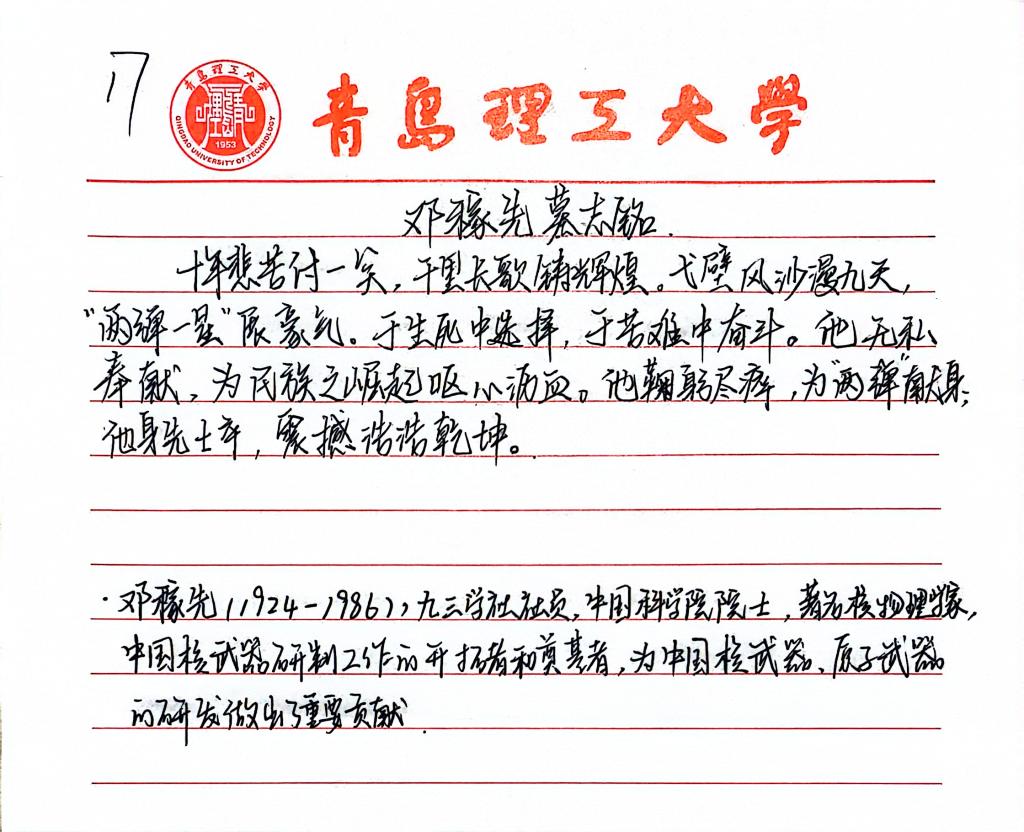 17
青岛理工大学
QINGDAO UNIVERSITY OF TECHNOLOGY
1953
青岛理工大学
邓稼先墓志铭.
十年悲苦付一笑，千里长歌铸辉煌。戈壁风沙漫九天，
“两弹一星”展豪气。于生死中选择，于苦难中奋斗。他无私
奉献，为民族之崛起呕心沥血。他鞠躬尽瘁，为“两弹”献身；
他身先士卒，震撼浩浩乾坤。
·邓稼先(1924-1986)，九三学社社员，中国科学院院士，著名核物理学家，
中国核武器研制工作的开拓者和奠基者，为中国核武器、原子武器
的研发做出了重要贡献.